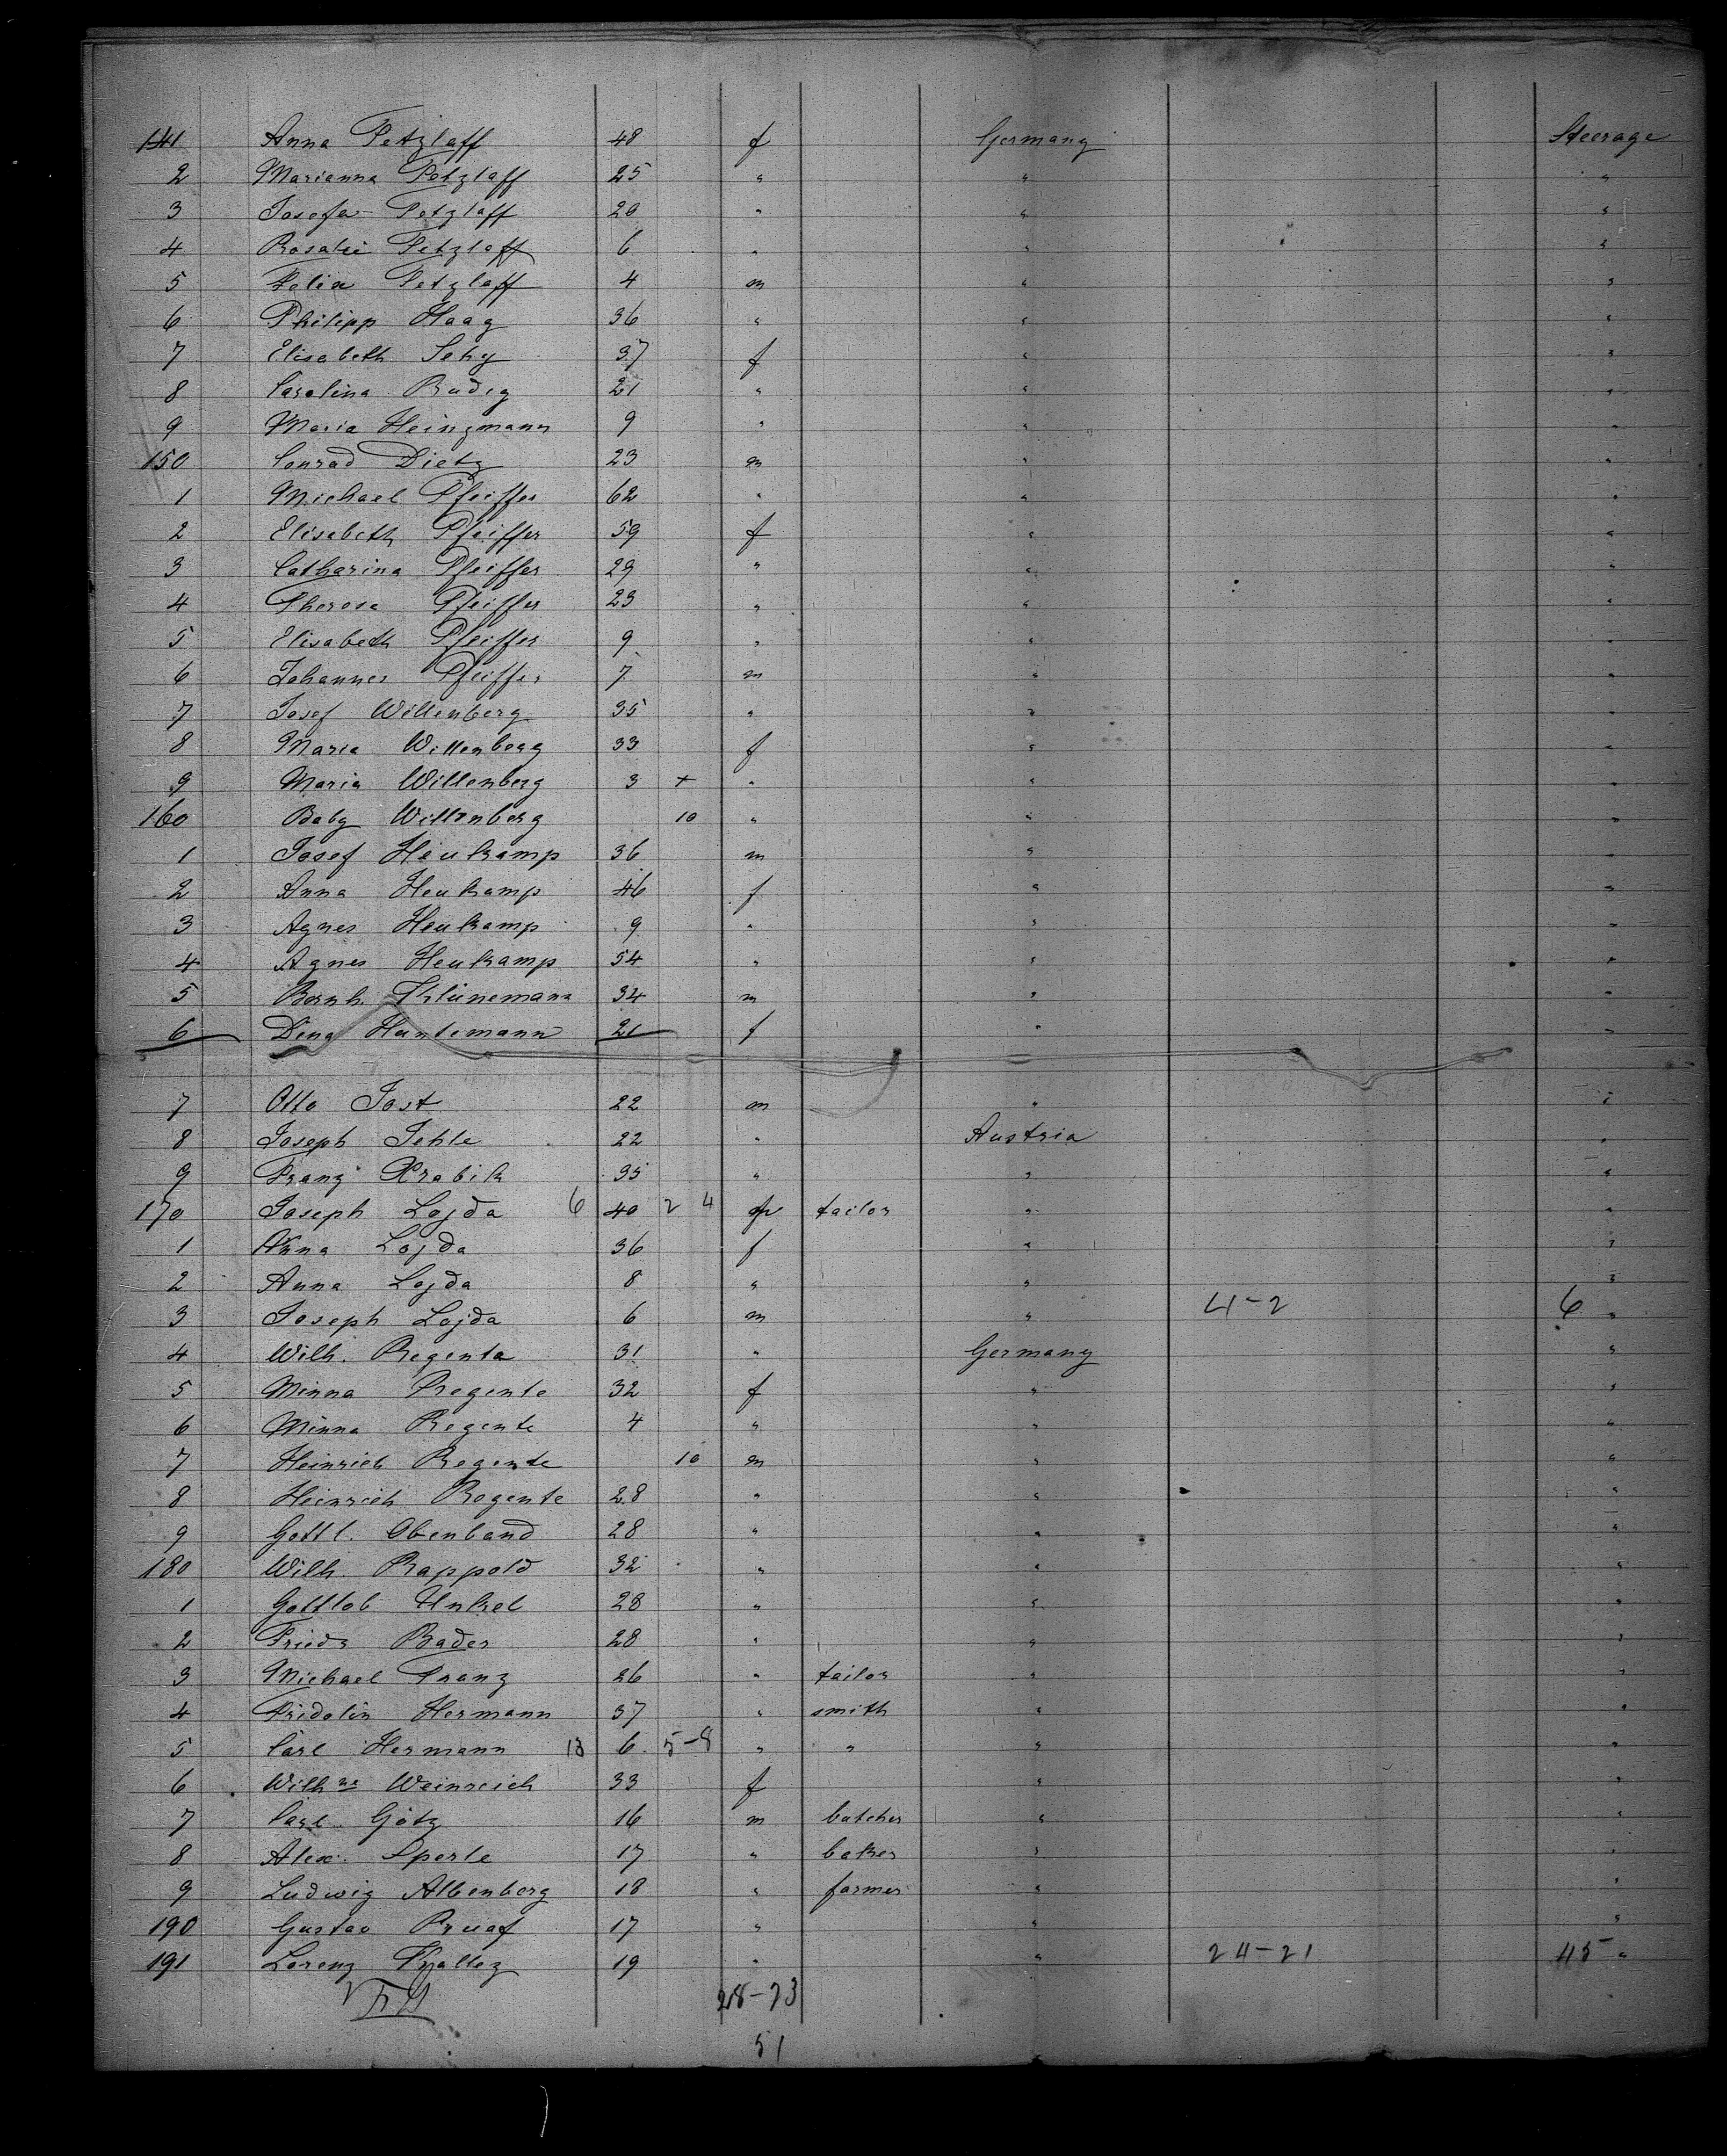 141 Anna Petzlaff 48 f Germany Steerage
2 Marianna Petzlaff 25 " " "
3 Josefa Petzlaff 20 " " "
4 Rosalie Petzlaff 6 " " "
5 Felix Petzlaff 4 m " "
6 Philipp Haag 36 " " "
7 Elisabeth Sehy 37 f " "
8 Carolina Rudig 21 " " "
9 Maria Heinzmann 9 " " "
150 Conrad Dietz 23 m " "
1 Michael Pfeiffer 62 " " "
2 Elisabeth Pfeiffer 59 f " "
3 Catharina Pfeiffer 29 " " "
4 Theresa Pfeiffer 23 " " "
5 Elisabeth Pfeiffer 9 " " "
6 Johannes Pfeiffer 7 m " "
7 Josef Willenberg 35 " " "
8 Maria Willenberg 33 f " "
9 Maria Willenberg 3 + " " "
160 Baby Willenberg 10 " " "
1 Josef Heukamp 36 m " "
2 Anna Heukamp 46 f " "
3 Agnes Heukamp 9 " " "
4 Agnes Heukamp 54 " " "
5 Bernh. Thlünemann 34 m " "
6 Dena Huntemann 21 f " "
7 Otto Jost 22 m " "
8 Joseph Jehle 22 " Austria "
9 Franz Hrabik 35 " " "
170 Joseph Lojda 6 40 2 4 m tailor " "
1 Anna Lojda 36 f " "
2 Anna Lojda 8 " " "
3 Joseph Lojda 6 m " 4-2 6 "
4 Wilh. Regente 31 " Germany "
5 Minna Regente 32 f " "
6 Minna Regente 4 " " "
7 Heinrich Regente 10 m " "
8 Heinrich Regente 28 " " "
9 Gottl. Obenland 28 " " "
180 Wilh. Rappold 32 " " "
1 Gottlob Unkel 28 " " "
2 Friedr Bader 28 " " "
3 Michael Franz 26 " tailor " "
4 Fridolin Hermann 37 " smith " "
5 Carl Hermann 13 6 5-8 " " " "
6 Wilhne Weinreich 33 f " "
7 Carl Götz 16 m butcher " "
8 Alex. Sperle 17 " baker " "
9 Ludwig Albenberg 18 " farmer " "
190 Gustav 17 " " "
191 Lorenz 19 " " 24-21 45 "
28-23
51